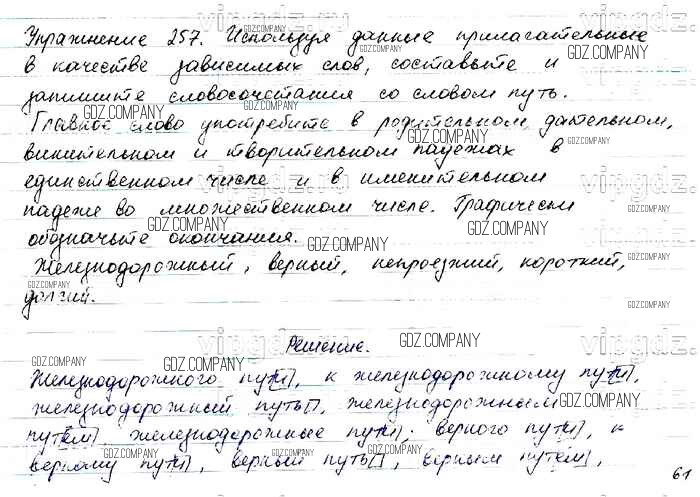 Упражнение 257. Используя данные прилагательные
в качестве зависимых слов, составьте и
запишите словосочетания со словом путь.
Главное слово употребите в родительном, дательном,
винительном и творительном падежах в
единственном числе и в именительном
падеже во множественном числе. Графически
обозначьте окончания.
Железнодорожный, верный, непроезжий, короткий,
долгий.
Решение.
Железнодорожного пути, к железнодорожному пути,
железнодорожный путь, железнодорожным
путём, железнодорожные пути; верного пути, к
верному пути, верный путь, верным путём,
61
vipgdz.ru
GDZ.COMPANY